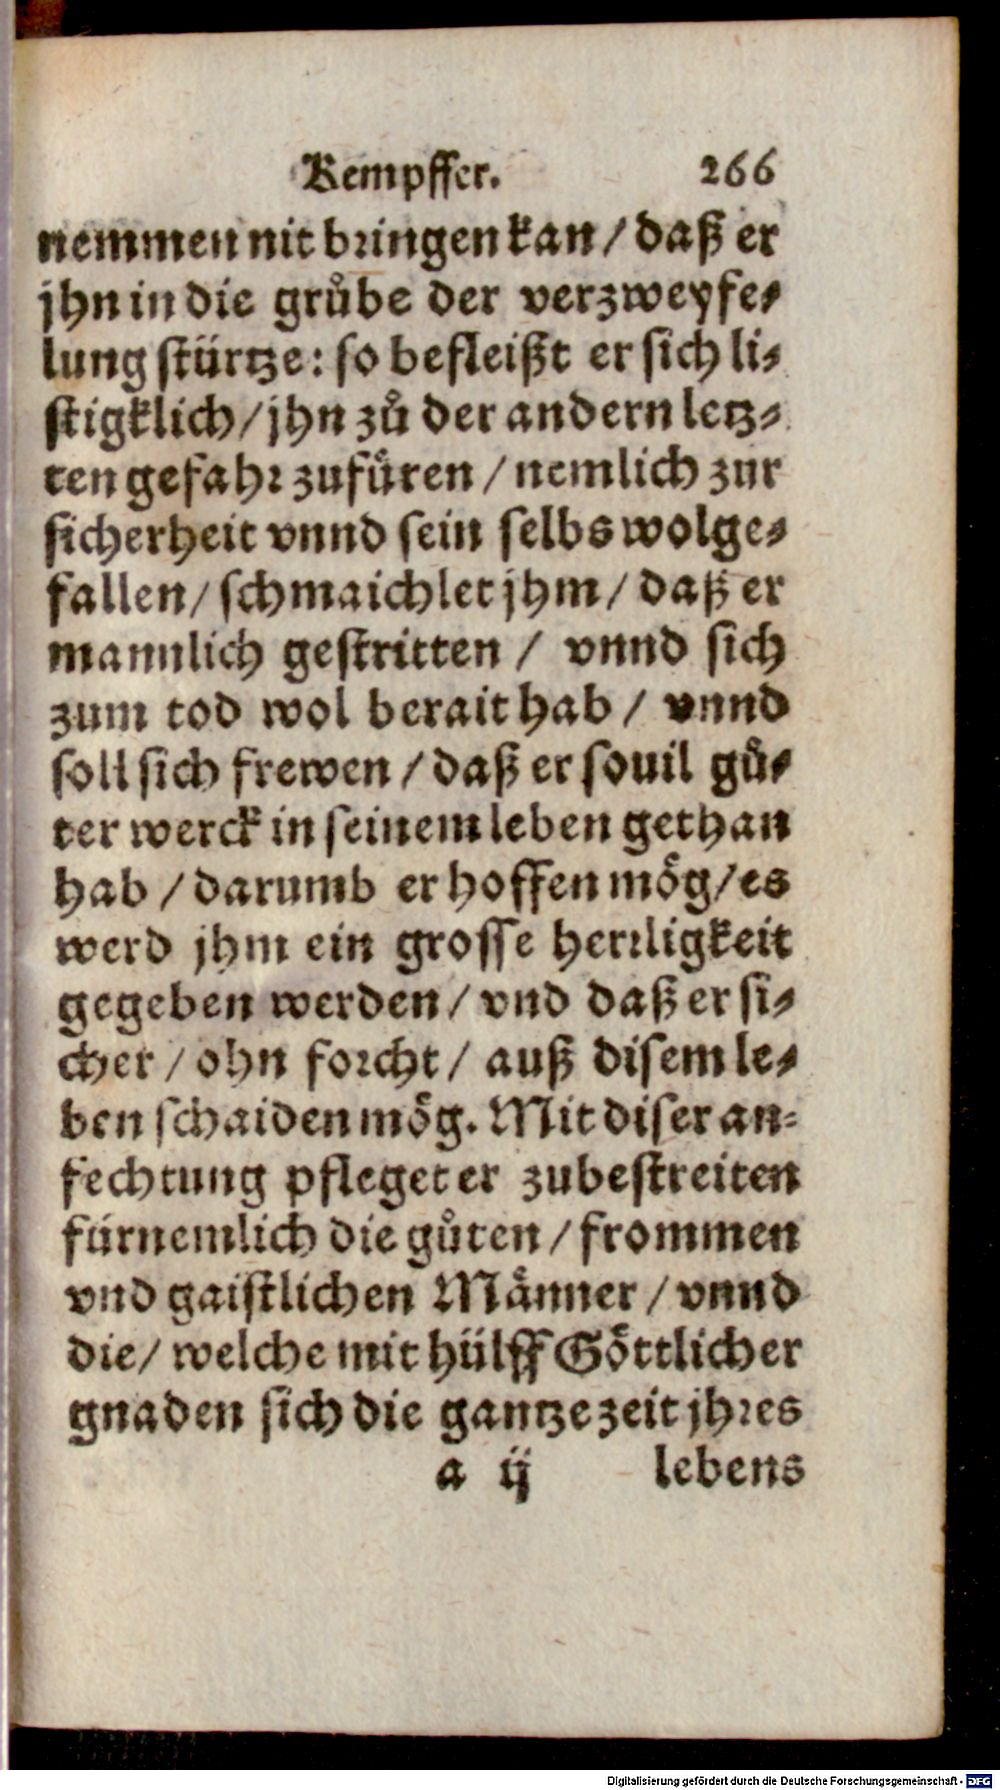 Kempffer. 266
nemmen nit bringen kan / daß er
jhn in die grůbe der verzweyfe⸗
lung stürtze: so befleißt er sich li⸗
stigklich / jhn zů der andern letz⸗
ten gefahr zufüren / nemlich zur
sicherheit vnnd sein selbs wolge⸗
fallen / schmaichlet jhm / daß er
mannlich gestritten / vnnd sich
zum tod wol berait hab / vnnd
soll sich frewen / daß er souil gů⸗
ter werck in seinem leben gethan
hab / darumb er hoffen mög / es
werd jhm ein grosse herrligkeit
gegeben werden / vnd daß er si⸗
cher / ohn forcht / auß disem le⸗
ben schaiden mög. Mit diser an⸗
fechtung pfleget er zubestreiten
fürnemlich die gůten / frommen
vnd gaistlichen Männer / vnnd
die / welche mit hülff Göttlicher
gnaden sich die gantze zeit jhres
a ij lebens
Digitalisierung gefördert durch die Deutsche Forschungsgemeinschaft - DFG